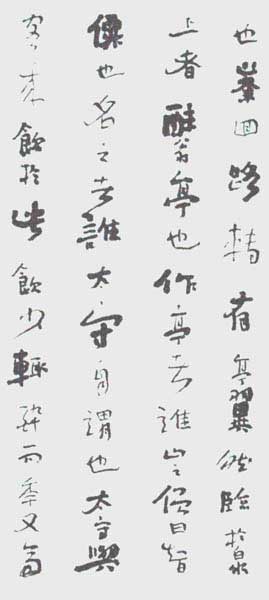 也峯回路轉有亭翼然臨於泉
上者醉翁亭也作亭者誰山之僧曰智
僊也名之者誰太守自謂也太守與
客來飲於此飲少輒醉而年又高